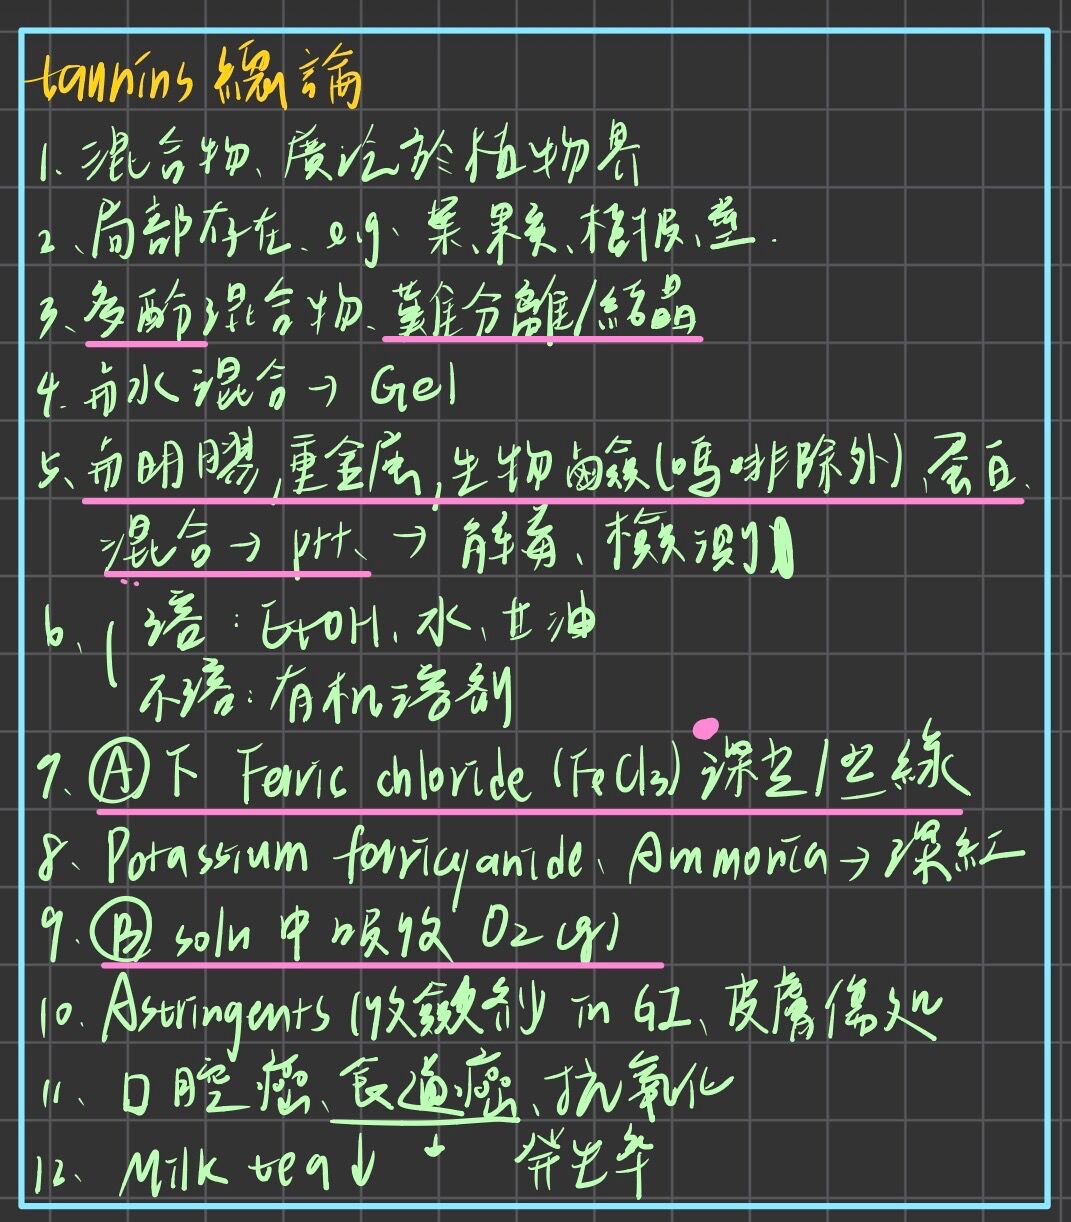 tannins 總論
1. 混合物、廣泛於植物界
2、局部存在、e.g. 葉、果實、樹皮、莖.
3、多酚混合物、難分離/結晶
4. 与水混合→ Gel
5、与明膠,重金屬,生物鹼(嗎啡除外)、蛋白.
混合→ ppt、→ 解毒、檢測
6、溶: EtOH、水、甘油
不溶: 有机溶劑
7. Ⓐ下 Ferric chloride (FeCl3) 深藍/藍綠
8、Potassium ferricyanide、Ammonia → 深紅
9. Ⓑ soln 中吸收 O2(g)
10. Astringents (收斂劑) in GI、皮膚傷処
11、口腔癌、食道癌、抗氧化
12、Milk tea ↓ ↓ 發生率